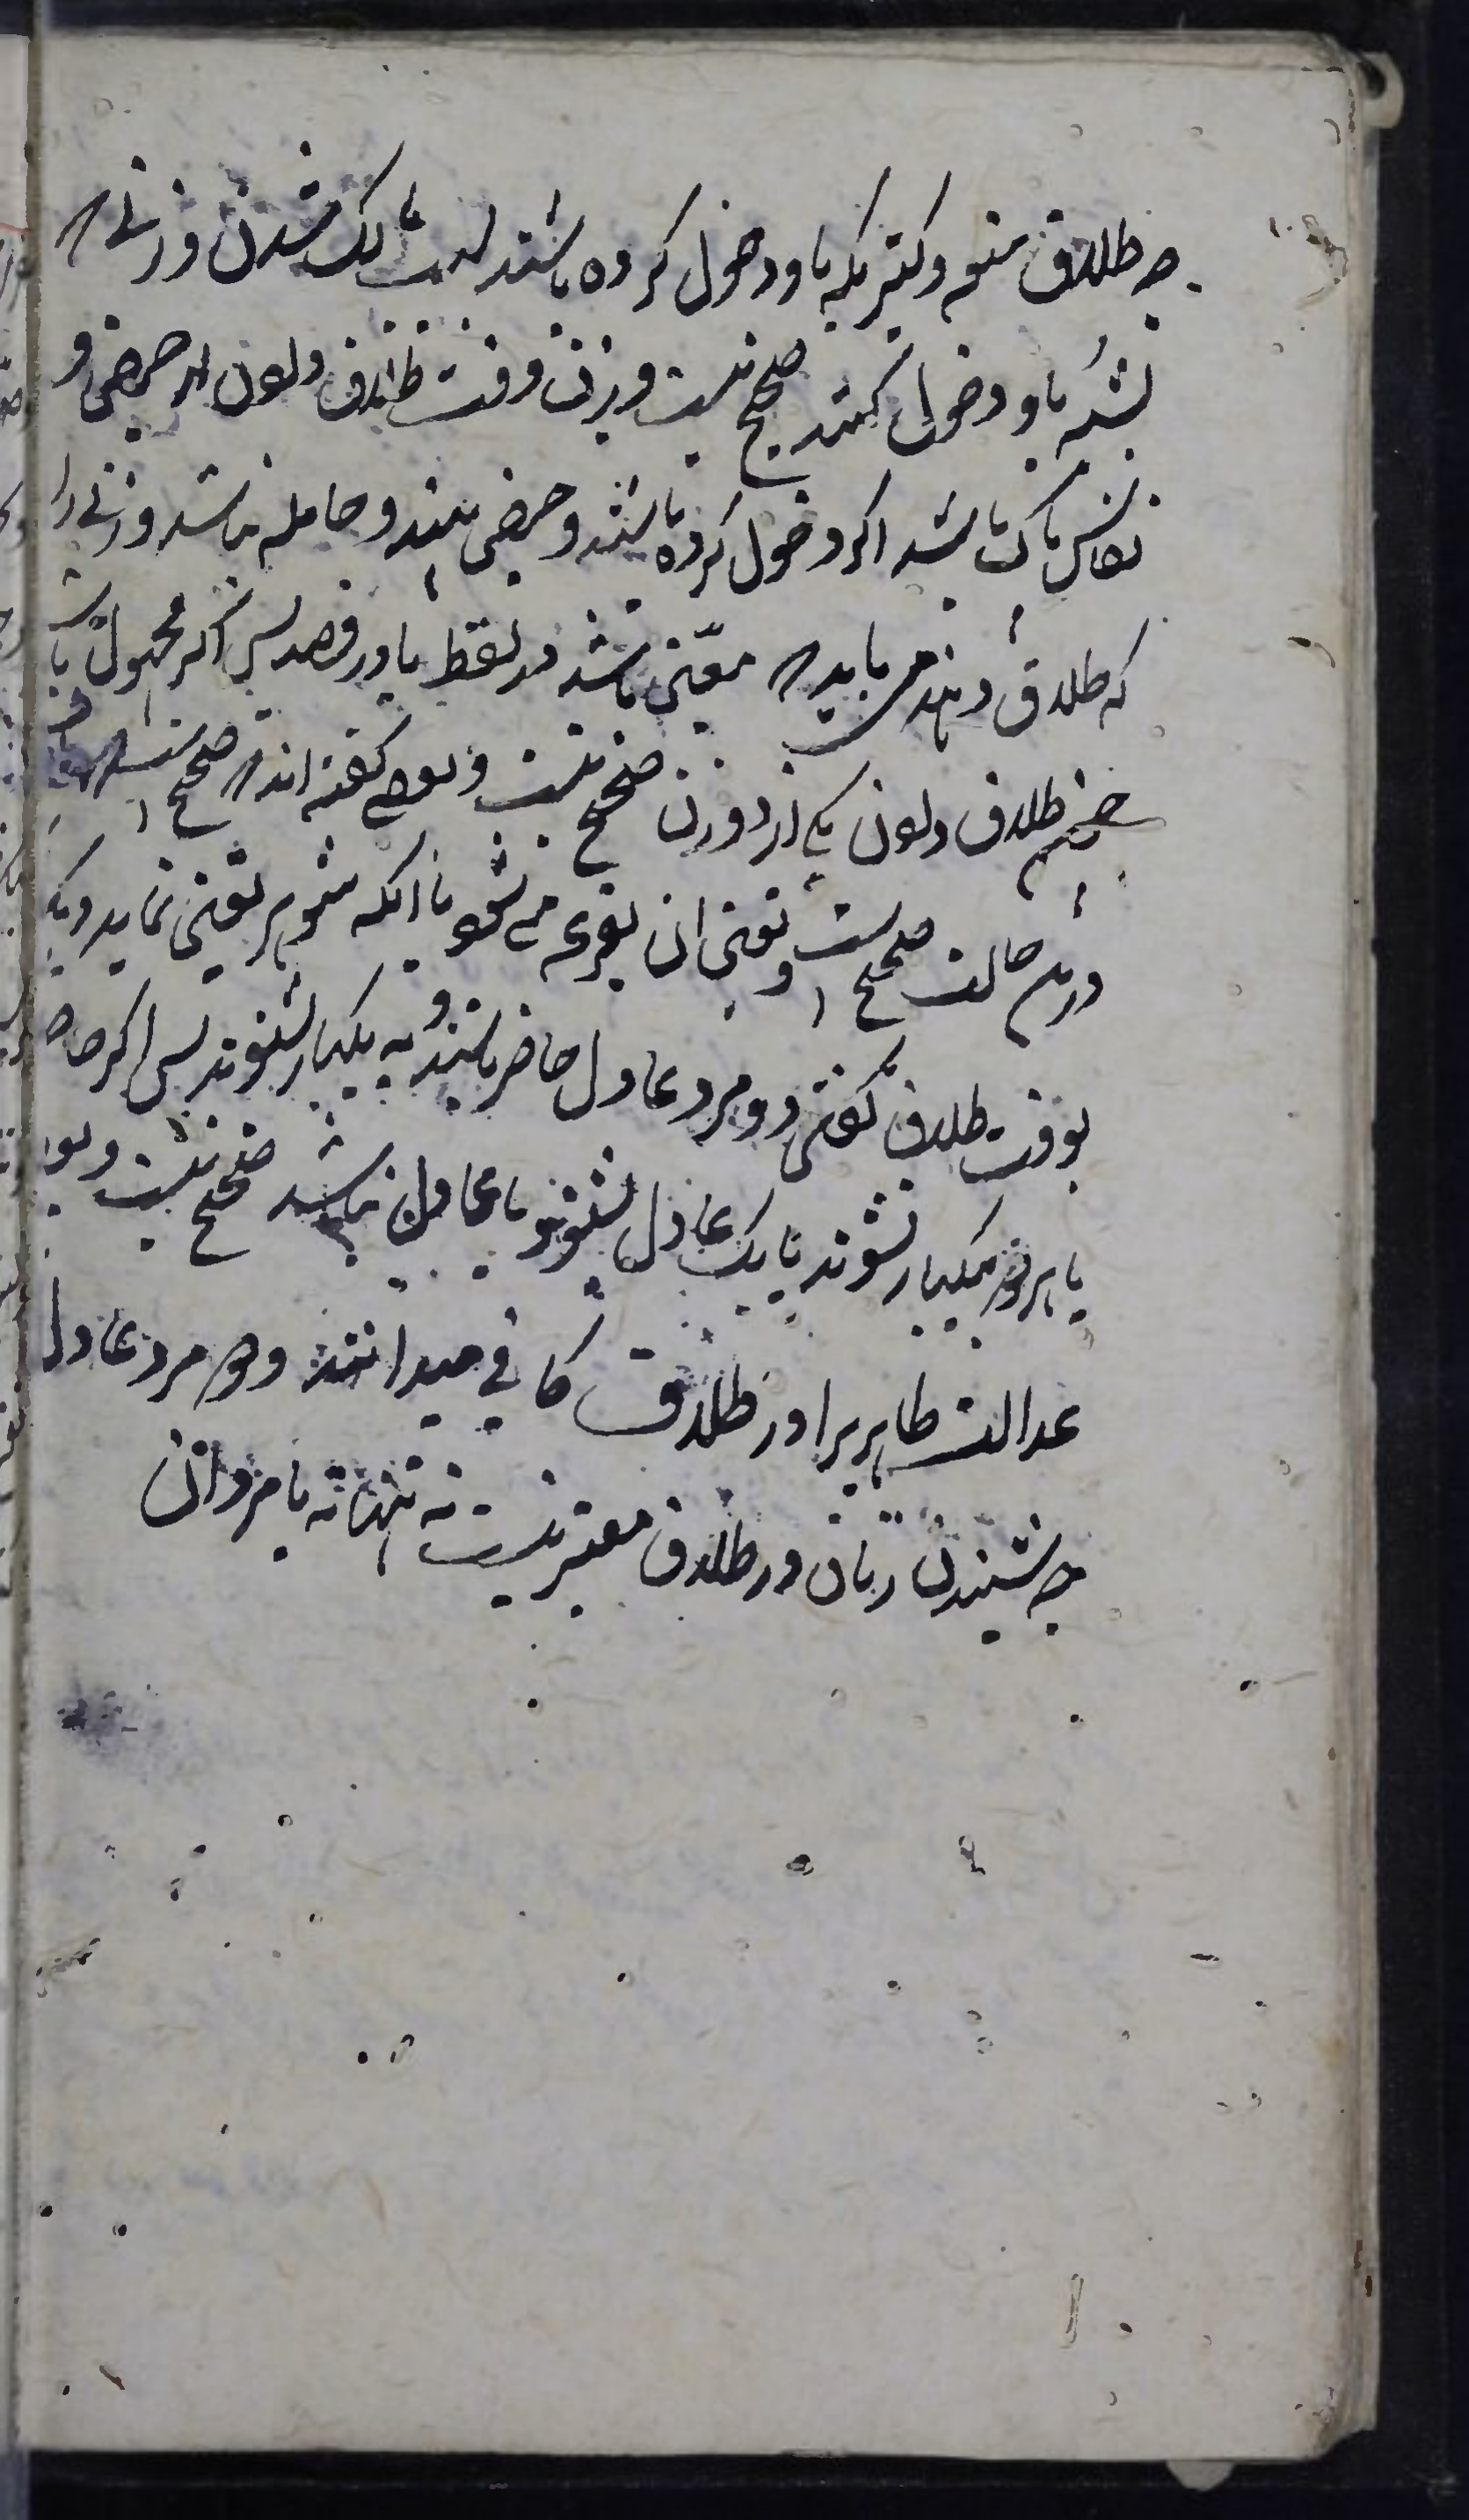 چه طلاق متعه و کنیزیکه باو دخول کرده باشند بسبب مالک شدن و زنی که
بشبه باو دخول کنند صحیح نیست و زن وقت طلاق دادن از حیض و
نفاس پاک باشد اگر دخول کرده باشند و حیض بیند و حامله نباشد و زنی را
که طلاق دهند می باید که معین باشد در لفظ یا در قصد پس اگر مجهول باشد
طلاق دادن یکی از دو زن صحیح نیست و بعضی گفته اند که صحیح است
درین حالت صحیح است و تعین ان بقرعه می شود یا انکه شوهر تعین نماید و باید که
بوقت طلاق گفتن دو مرد عادل حاضر باشند و به یکبار بشنوند پس اگر حاضر
یا هر دو بیکبار نشنوند یا یک عادل بشنود یا عادل نباشد صحیح نیست و بعضی
عدالت ظاهر را در طلاق کافی میدانند و دو مرد عادل
چه شنیدن زنان در طلاق معتبر نیست نه تنها نه با مردان